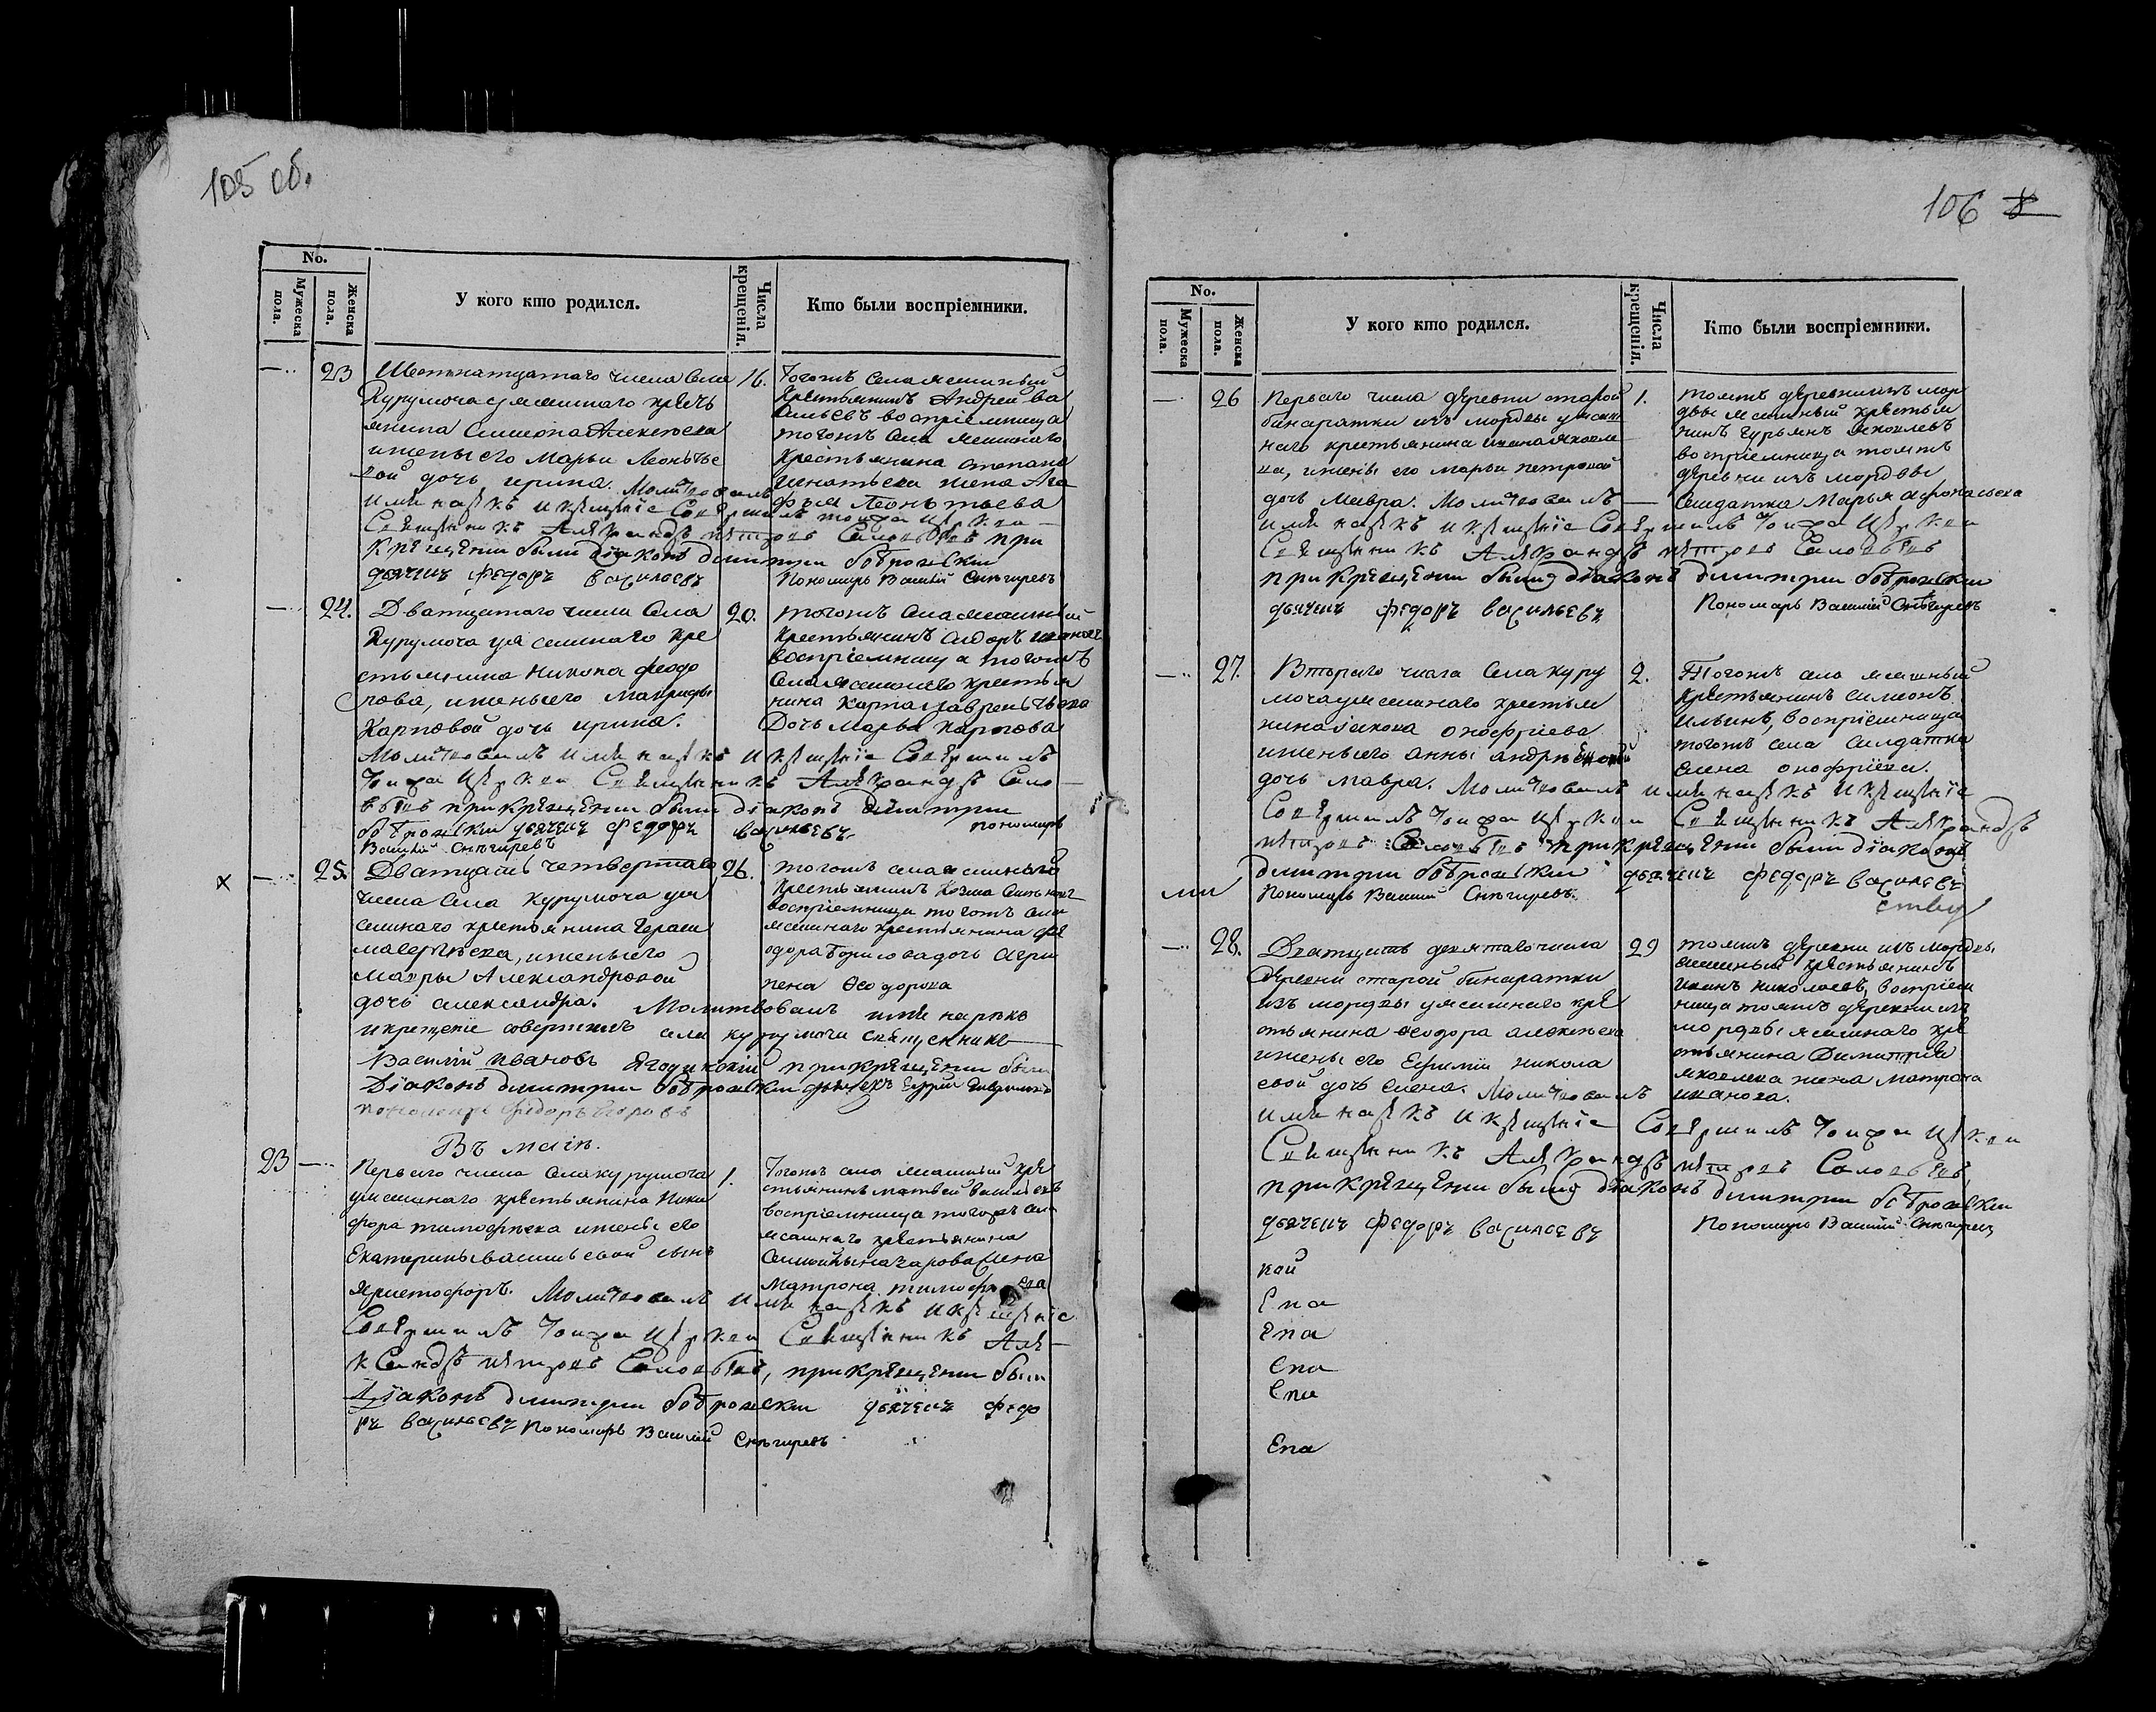 105 об.
No.
Мужеска пола.
Женска пола.
У кого кто родился.
Числа крещенія.
Кто были воспріемники.
23
Шестнатцатаго числа Села
Курумоча удѣльнаго кресть
янина Симиона Алексѣева
и жены его Марьи Леонтье
вой дочь ирина. Молитвовалъ
имя нарѣкъ и крещеніе Совершилъ тоижа церкви
Священникъ Александръ пѣтровъ Соловьевъ при
крѣщении были діаконъ димитрии бобровскии
дьячекъ федоръ васильевъ Пономарь Василій Снѣгиревъ
16.
Тогожъ села удѣльный
Крестьянинъ Андрей ва
сильевъ воспріемница
тогожъ села удѣльнаго
Крестьянина степана
игнатьева жена Ага
фья Леонтьева
24.
Дватцатаго числа Села
Курумоча удѣльнаго кре
стьянина Никона феодо
рова, и жены его
Карповой дочь ирина.
Молитвовалъ имя нарѣкъ и крещеніе Совершилъ
тоижа церкви Священникъ Александръ Соло
вьевъ при крѣщении были діаконъ димитрии
бобровскии дьячекъ федоръ васильевъ пономарь
Василій Снѣгиревъ
20.
тогожъ села удѣльный
крестьянинъ сидоръ ивановъ
воспріемница тогожъ
села удѣльнаго крестья
нина карпа лаврентьева
Дочь марья карпова
25.
Дватцать четвертаго
числа села курумоча удѣ
льнаго крестьянина
савельева, и жены его
мавры Александровой
дочь александра. Молитвовалъ имя нарѣкъ
и крещеніе совершилъ села курумочи священникъ
Василій Ивановъ Ягодинский при крѣщении были
Діаконъ димитрии бобровскии дьячекъ
пономарь федоръ Егоровъ
26.
тогожъ села удѣльный
крестьянинъ козма
воспріемница тогожъ села
удѣльнаго крестьянина фе
одора борисова дочь агри
пена Ѳеодорова
Въ маіѣ.
23
Перваго числа Села курумоча
удѣльнаго крестьянина Ники
фора тимофѣева и жены его
Екатерины васильевой сынъ
христофоръ. Молитвовалъ имя нарѣкъ и крещеніе
Совершилъ тоижа церкви Священникъ Але
ксандръ пѣтровъ Соловьевъ, при крѣщении были
Діаконъ димитрии бобровскии дьячекъ федо
ръ васильевъ Пономарь Василій Снѣгиревъ
1.
Тогожъ села удѣльный кре
стьянинъ матвей васильевъ
воспріемница тогожъ села
удѣльнаго крестьянина
жена
матрона тимофѣева
106
No.
Мужеска пола.
Женска пола.
У кого кто родился.
Числа крещенія.
Кто были воспріемники.
26
Перваго числа деревни старой
бинаратки изъ мордвы удѣль
наго крестьянина ивана яковле
ва, и жены его марьи петровой
дочь мавра. Молитвовалъ
имя нарѣкъ и крещеніе Совершилъ тоижа церкви
Священникъ Александръ пѣтровъ Соловьевъ
при крѣщении были діаконъ димитрии бобровскии
дьячекъ федоръ васильевъ Пономарь Василій Снѣгиревъ
1.
тоижъ деревни изъ мор
двы удѣльный крестья
нинъ гурьянъ яковлевъ
воспріемница тоижъ
деревни изъ мордвы
Солдатка Марья афонасьева
27.
Втораго числа села куру
моча удѣльнаго крестья
нина якова онофріева
и жены его анны андрѣевой
дочь мавра. Молитвовалъ имя нарѣкъ и крещеніе
Совершилъ тоижа церкви Священникъ Александръ
пѣтровъ Соловьевъ при крѣщении были діаконъ
димитрии бобровскии дьячекъ федоръ васильевъ
Пономарь Василій Снѣгиревъ.
2.
Тогожъ села удѣльный
крестьянинъ симеонъ
ильинъ, воспріемница
тогожъ села солдатка
елена онофріева.
28.
Дватцать девятаго числа
деревни старой бинаратки
изъ мордвы удѣльнаго кре
стьянина ѳеодора алексѣева
и жены его Ефиміи Никола
евой дочь елена. Молитвовалъ
имя нарѣкъ и крещеніе Совершилъ тоижа церкви
Священникъ Александръ пѣтровъ Соловьевъ,
при крѣщении были діаконъ димитрии бобровскии
дьячекъ федоръ васильевъ Пономарь Василій Снѣгиревъ
29
тоижъ деревни изъ мордвы
удѣльный крестьянинъ
иванъ николаевъ, воспріем
ница тоижъ деревни изъ
мордвы удѣльнаго кре
стьянина Димитрія
яковлева жена матрона
иванова.
кой
Епа
Епа
Епа
Епа
Епа